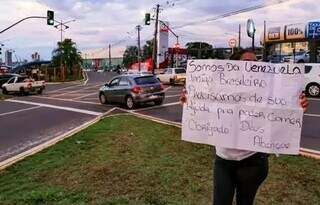 Somos Da Venezuela
Amigo Brasileiro
Precisamos de sua
ajuda pra poder Comer
Obrigado Deus
Abençoe